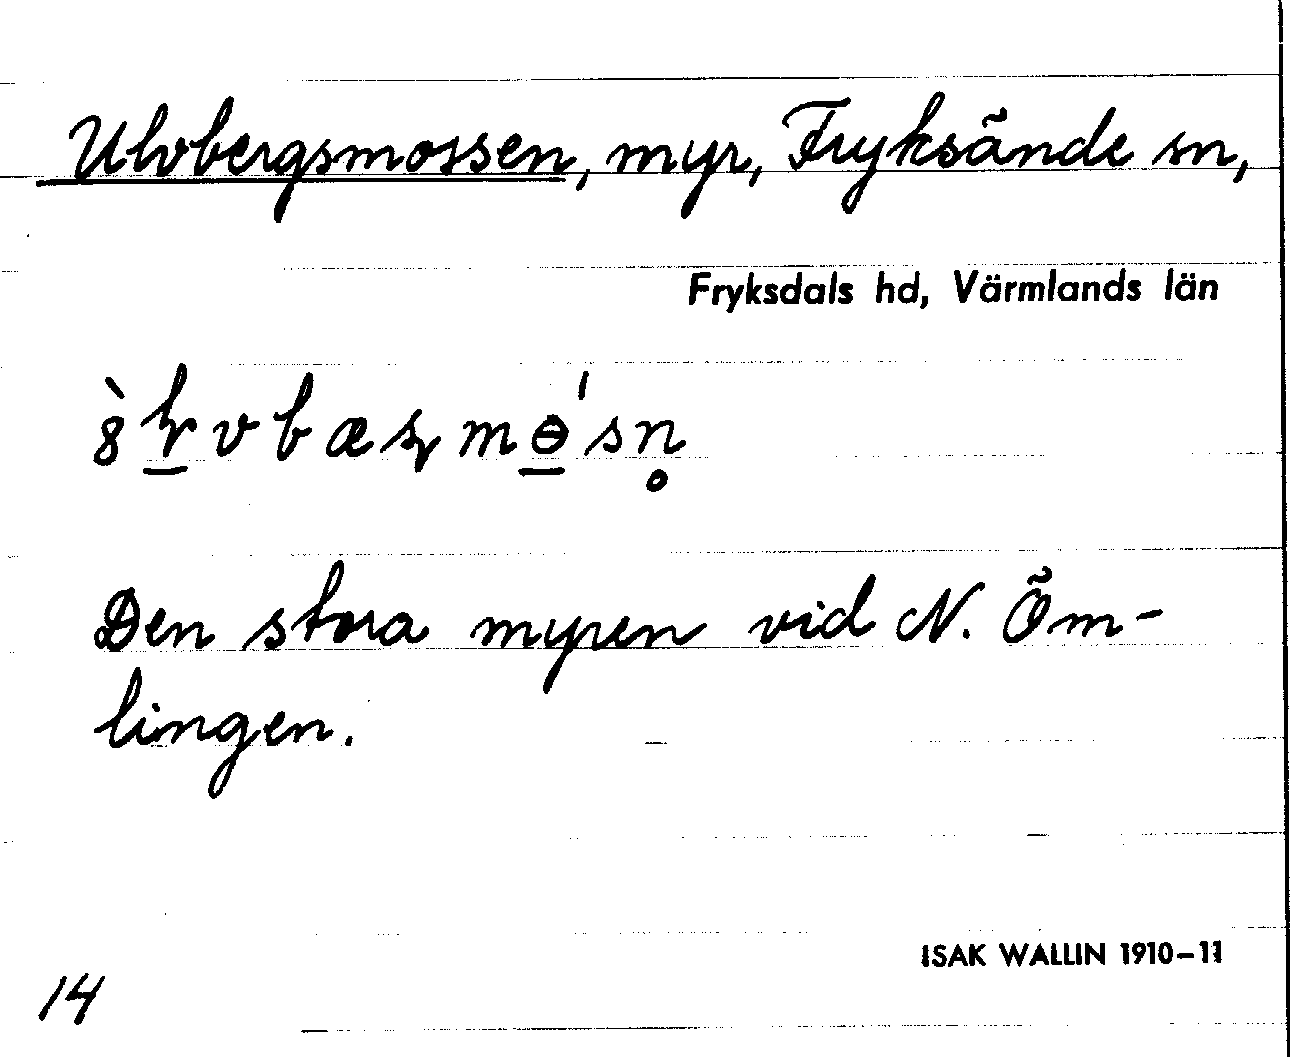 Ulvbergsmossen, myr, Fryksände sn,
Fryksdals hd, Värmlands län
Den stora myren vid N. Öm-
lingen.
ISAK WALLIN 1910-11
14